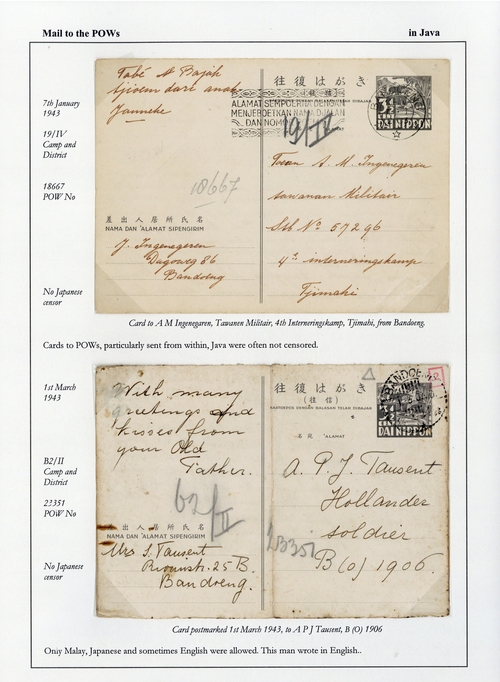 Mail to the POWs
in Java
7th January
1943
19/IV
Camp and
District
18667
POW No
No Japanese
censor
Tabé A Bajak
tjioem dari anak
Janneke
往復はがき
ALAMAT SEMPOERNA DENGAN
MENJEBOETKAN NAMA DJALAN
DAN NOMOR
3½
DAI NIPPON
19/IV
18667
差出人居所氏名
NAMA DAN 'ALAMAT SIPENGIRIM
J. Ingenegeren
Dagoweg 86
Bandoeng
Toean A. M. Ingenegeren
tawanan Militair
Stb No 57296
4e interneringskamp
Tjimahi
Card to A M Ingenegaren, Tawanen Militair, 4th Interneringskamp, Tjimahi, from Bandoeng.
Cards to POWs, particularly sent from within, Java were often not censored.
1st March
1943
B2/II
Camp and
District
2?351
POW No
No Japanese
censor
With many
greetings and
kisses from
your Old
Father.
往復はがき
(往信)
'ALAMAT
BANDOENG
3½
DAI NIPPON
b2/II
差出人居所氏名
NAMA DAN 'ALAMAT SIPENGIRIM
Mrs S. Tausent
25 B.
Bandoeng.
A. P. J. Tausent
Hollander
soldier
B (o) 1906.
Card postmarked 1st March 1943, to A P J Tausent, B (O) 1906
Only Malay, Japanese and sometimes English were allowed. This man wrote in English..